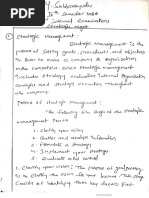 IVth Semester MBA
Internal Examinations
Strategic Mgmt
① Strategic Management:
Strategic Management is the
process of setting goals, procedures, and objectives
in order to make a company or organization
more competitive
Includes strategy evaluation internal organization
analysis and strategy execution through out the
organization.
Process of Strategic Management:
The following six steps of the strategic
management process
1. Clarify your vision
2. Gather and analyze Information
3. Formulate a strategy
4. Implement your strategy
5. Evaluate and control
1. Clarify your vision: The purpose of goal-setting
is to clarify the vision of your business. This step
consists of identifying three key facets: First